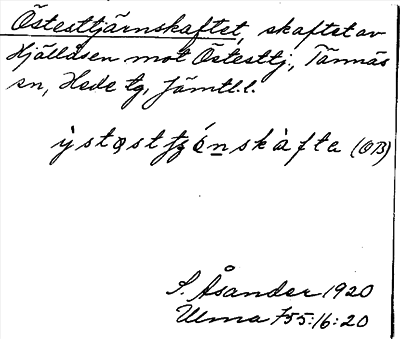 Östesttjärnskaftet, skaftet av
Hjällåsen mot Östesttj., Tännäs
sn, Hede tg, Jämtl. l.
(OB)
S. Åsander 1920
Ulma 755:16:20